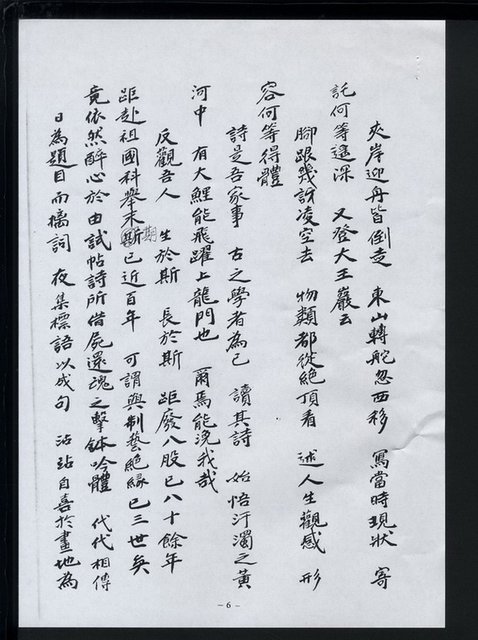 夾岸迎舟皆倒走　東山轉舵忽西移　寫當時現狀　寄
託何等遙深　又登大王巖云
腳跟幾訝凌空去　物類都從絕頂看　述人生觀感　形
容何等得體
詩是吾家事　古之學者為己　讀其詩　始悟汙濁之黃
河中　有大鯉能飛躍上龍門也　爾焉能浼我哉
反觀吾人　生於斯　長於斯　距廢八股已八十餘年
距赴祖國科舉末期已近百年　可謂與制藝絕緣已三世矣
竟依然醉心於由試帖詩所借屍還魂之擊鉢吟體　代代相傳
日為題目而擒詞　夜集標語以成句　沾沾自喜於畫地為
-6-